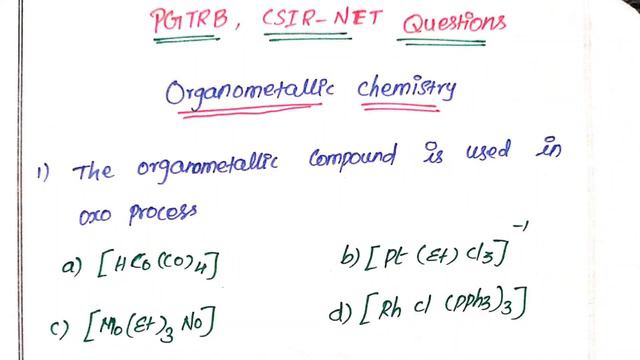 PGTRB, CSIR-NET Questions
Organometallic chemistry
1) The organometallic compound is used in
oxo process
a) [HCo(CO)4] b) [Pt(Et)Cl3]⁻¹
c) [Mo(Et)3 No] d) [Rh Cl (PPh3)3]